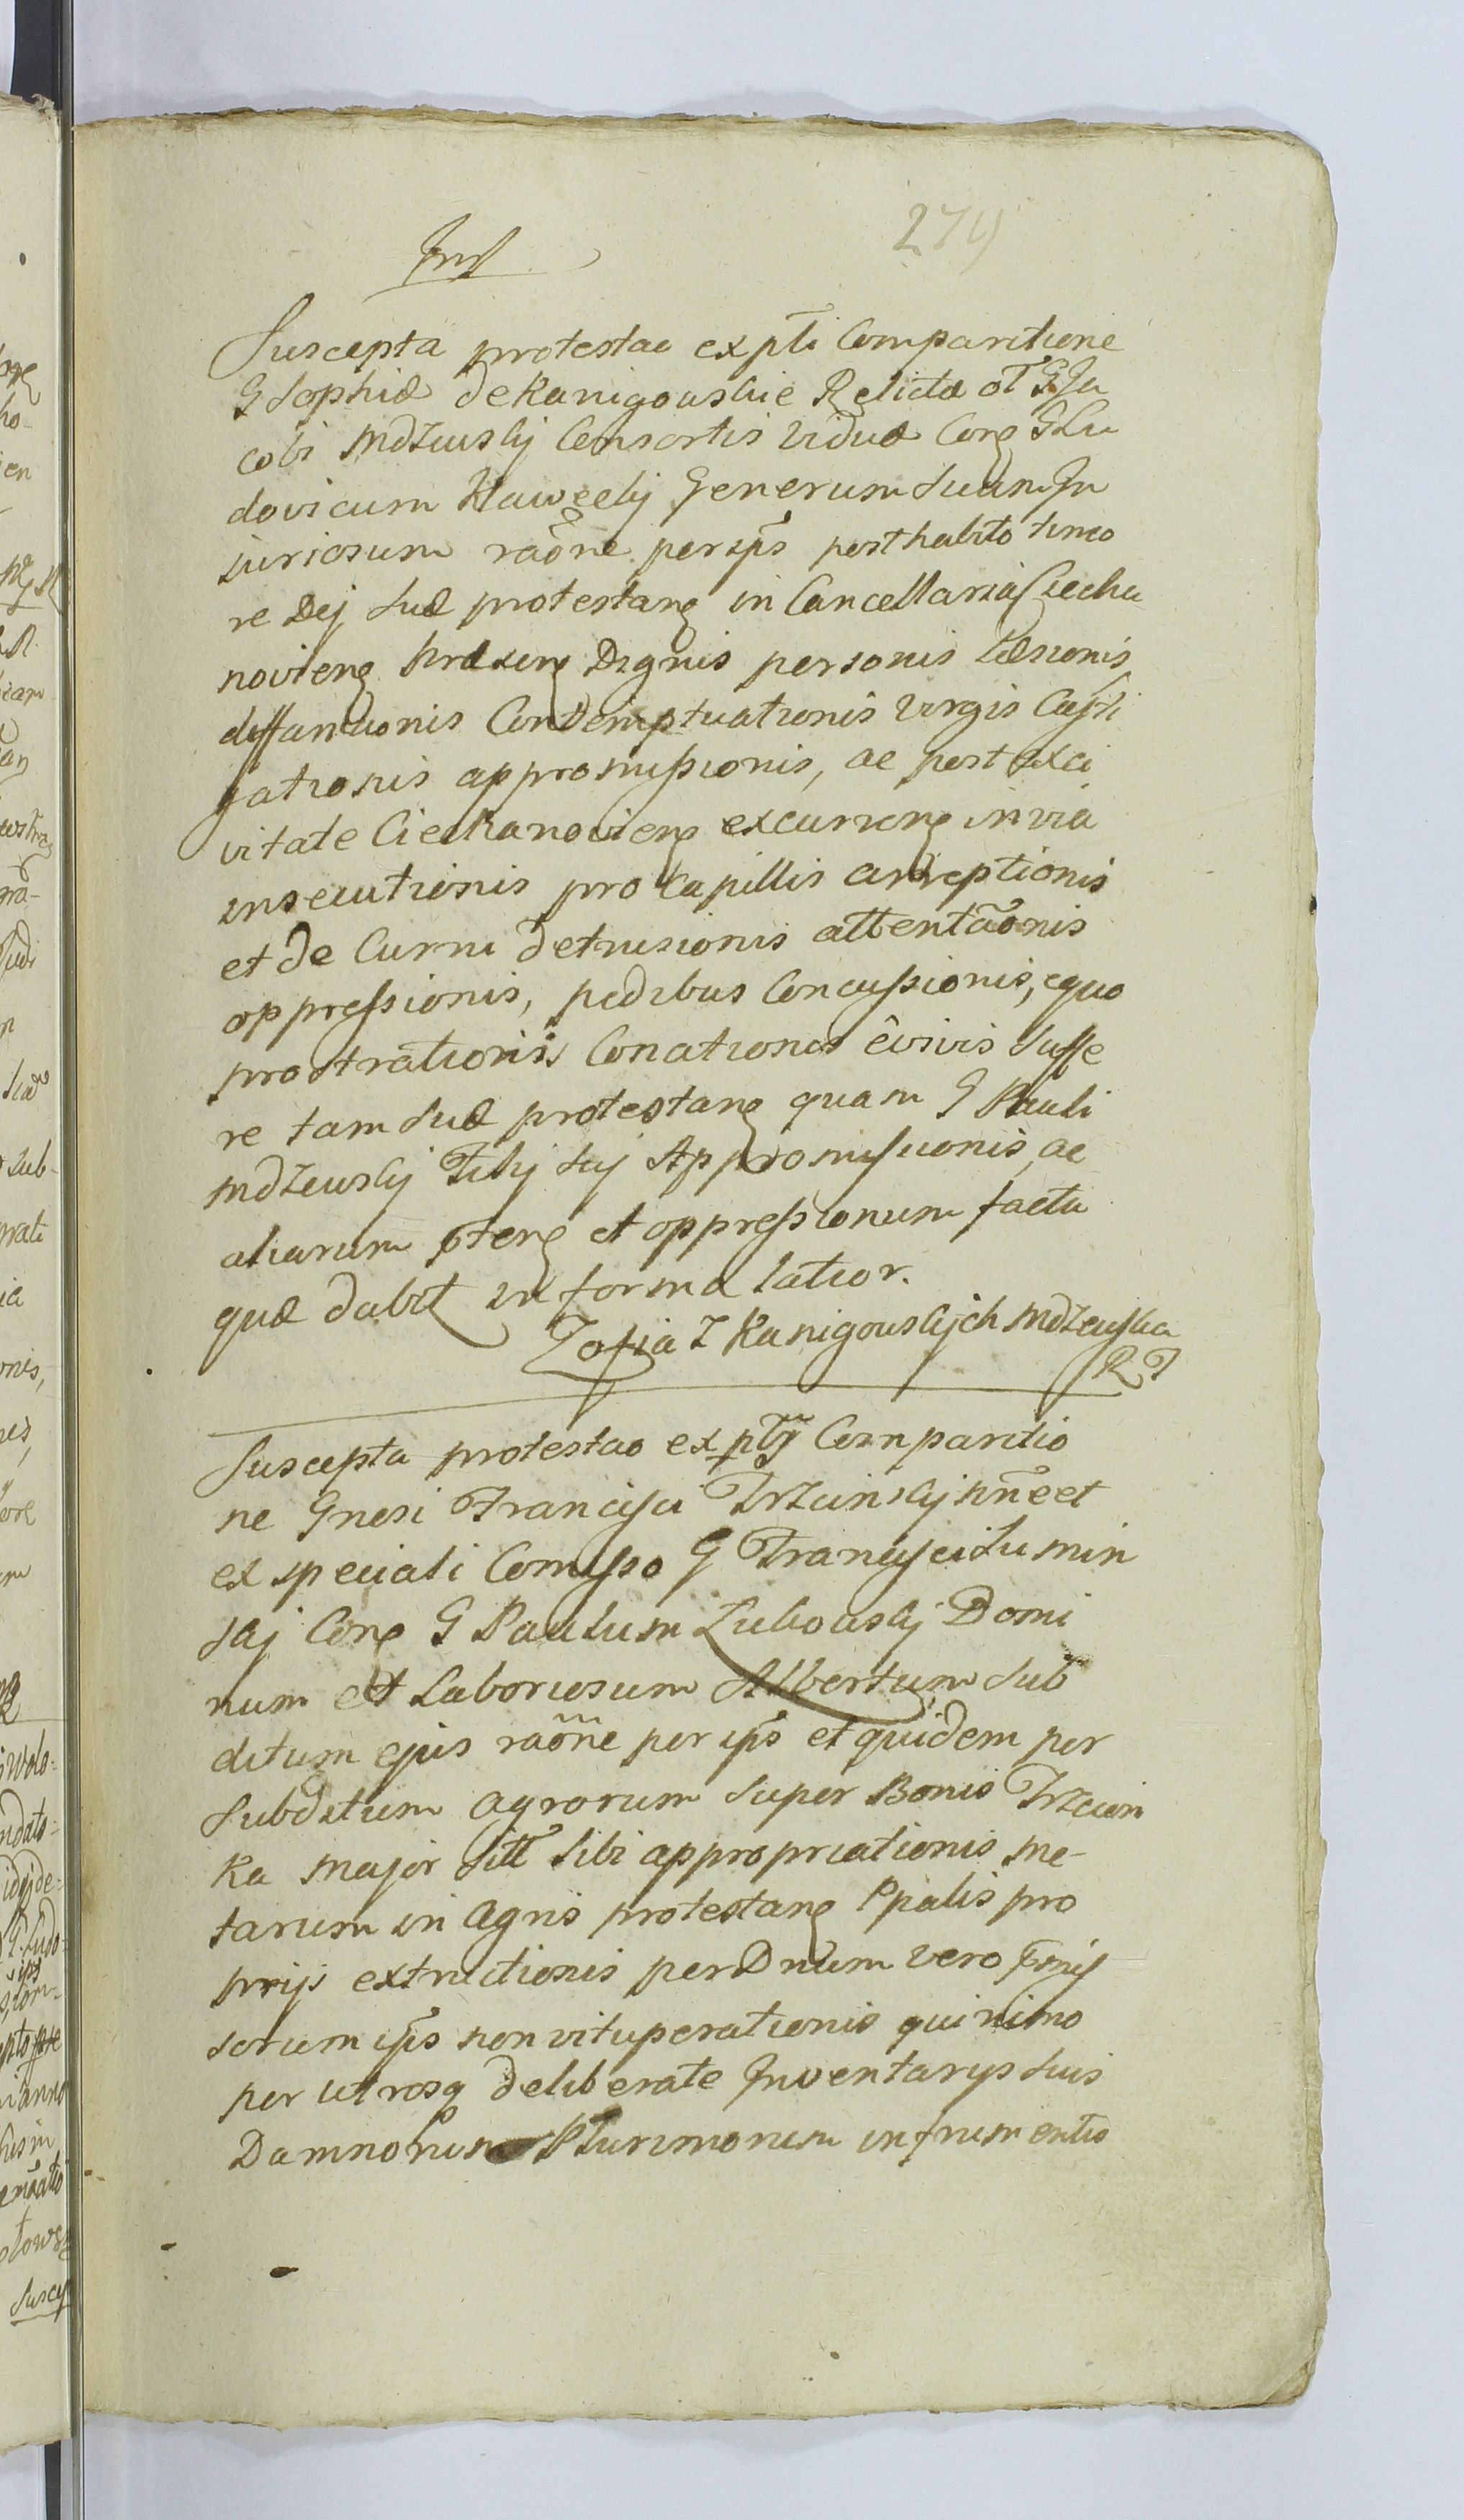 274
Suscepta protestao ex pti Comparitione
G Sophiæ de Kanigowskie Relictæ ol G Ja
cobi Mdzewskij Consortis Viduæ Cong G Lu
dovicum Haweelij Generum Suum In
juriosum raone per eps posthabito timo
re Dej Suæ protestang in Cancellaria Ciecha
novieng præseng Dignis personis Læsionis
diffamaonis Contemptuationis Virgis Casti
gationis appromissionis, ac post ex ci
vitate Ciechanovieng excurreng in via
insecutionis pro Capillis arreptionis
et de Curru detrusionis attentaonis
oppressionis, pedibus Concussionis, equo
prostrationis Conationis è vivis Suffe
re tam Suæ protestang quam G Pauli
Mdzewskij Filij Sui Appromissionis, ac
aliarum oteng et oppressionum factu
quæ dabit in forma latior.
Zofia Z Kanigowskijch Mdzewska
Suscepta protestao ex ptij Comparitio
ne Gnesi Francisci Trzcinskij nne et
ex speciali Comisso G Francisci Lumin
skij Cong G Paulum Zubowskij Domi
num et Laboriosum Albertum Sub
ditum ejus raone per eps et quidem per
Subditum agrorum Super Bonis Trzcian
ka major Sitt Sibi appropriationis me-
tarum in agris protestang Ppalis pro
prijs extructionis per Dnum vero
sorum eps non vituperationis quinimo
per utrosq deliberate Inventarys Suis
Damnorum Plurimorum in frumentis